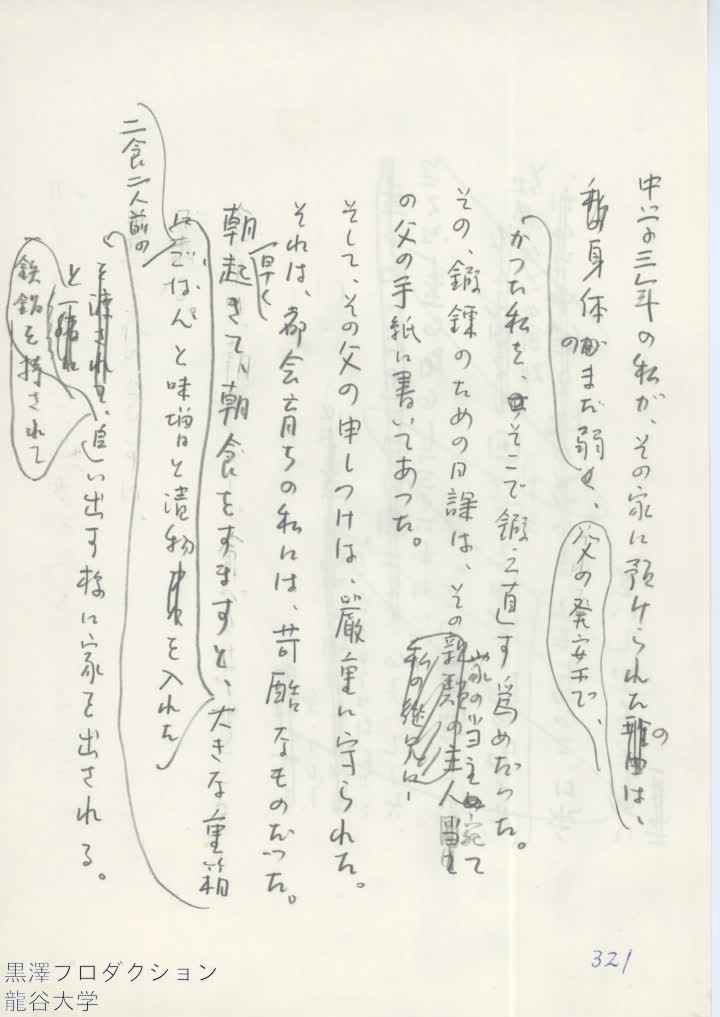 中学三年の私が、その家に預けられたのは、
父の発案で、
身体のまだ弱
かつた私を、そこで鍛え直す為めだつた。
その、鍛錬のための日課は、その家の当主宛て
の父の手紙に書いてあつた。
そして、その父の申しつけは、厳重に守られた。
それは、都会育ちの私には、苛酷なものだつた。
朝早く起きて、朝食をすますと、大きな重箱
に
二食二人前の
ごはんと味噌と漬物を入れた
と一緒に
鉄鍋を持されて
追い出す様に家を出される。
321
黒澤プロダクション
龍谷大学